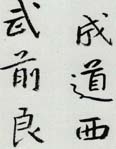 成道西
武前良